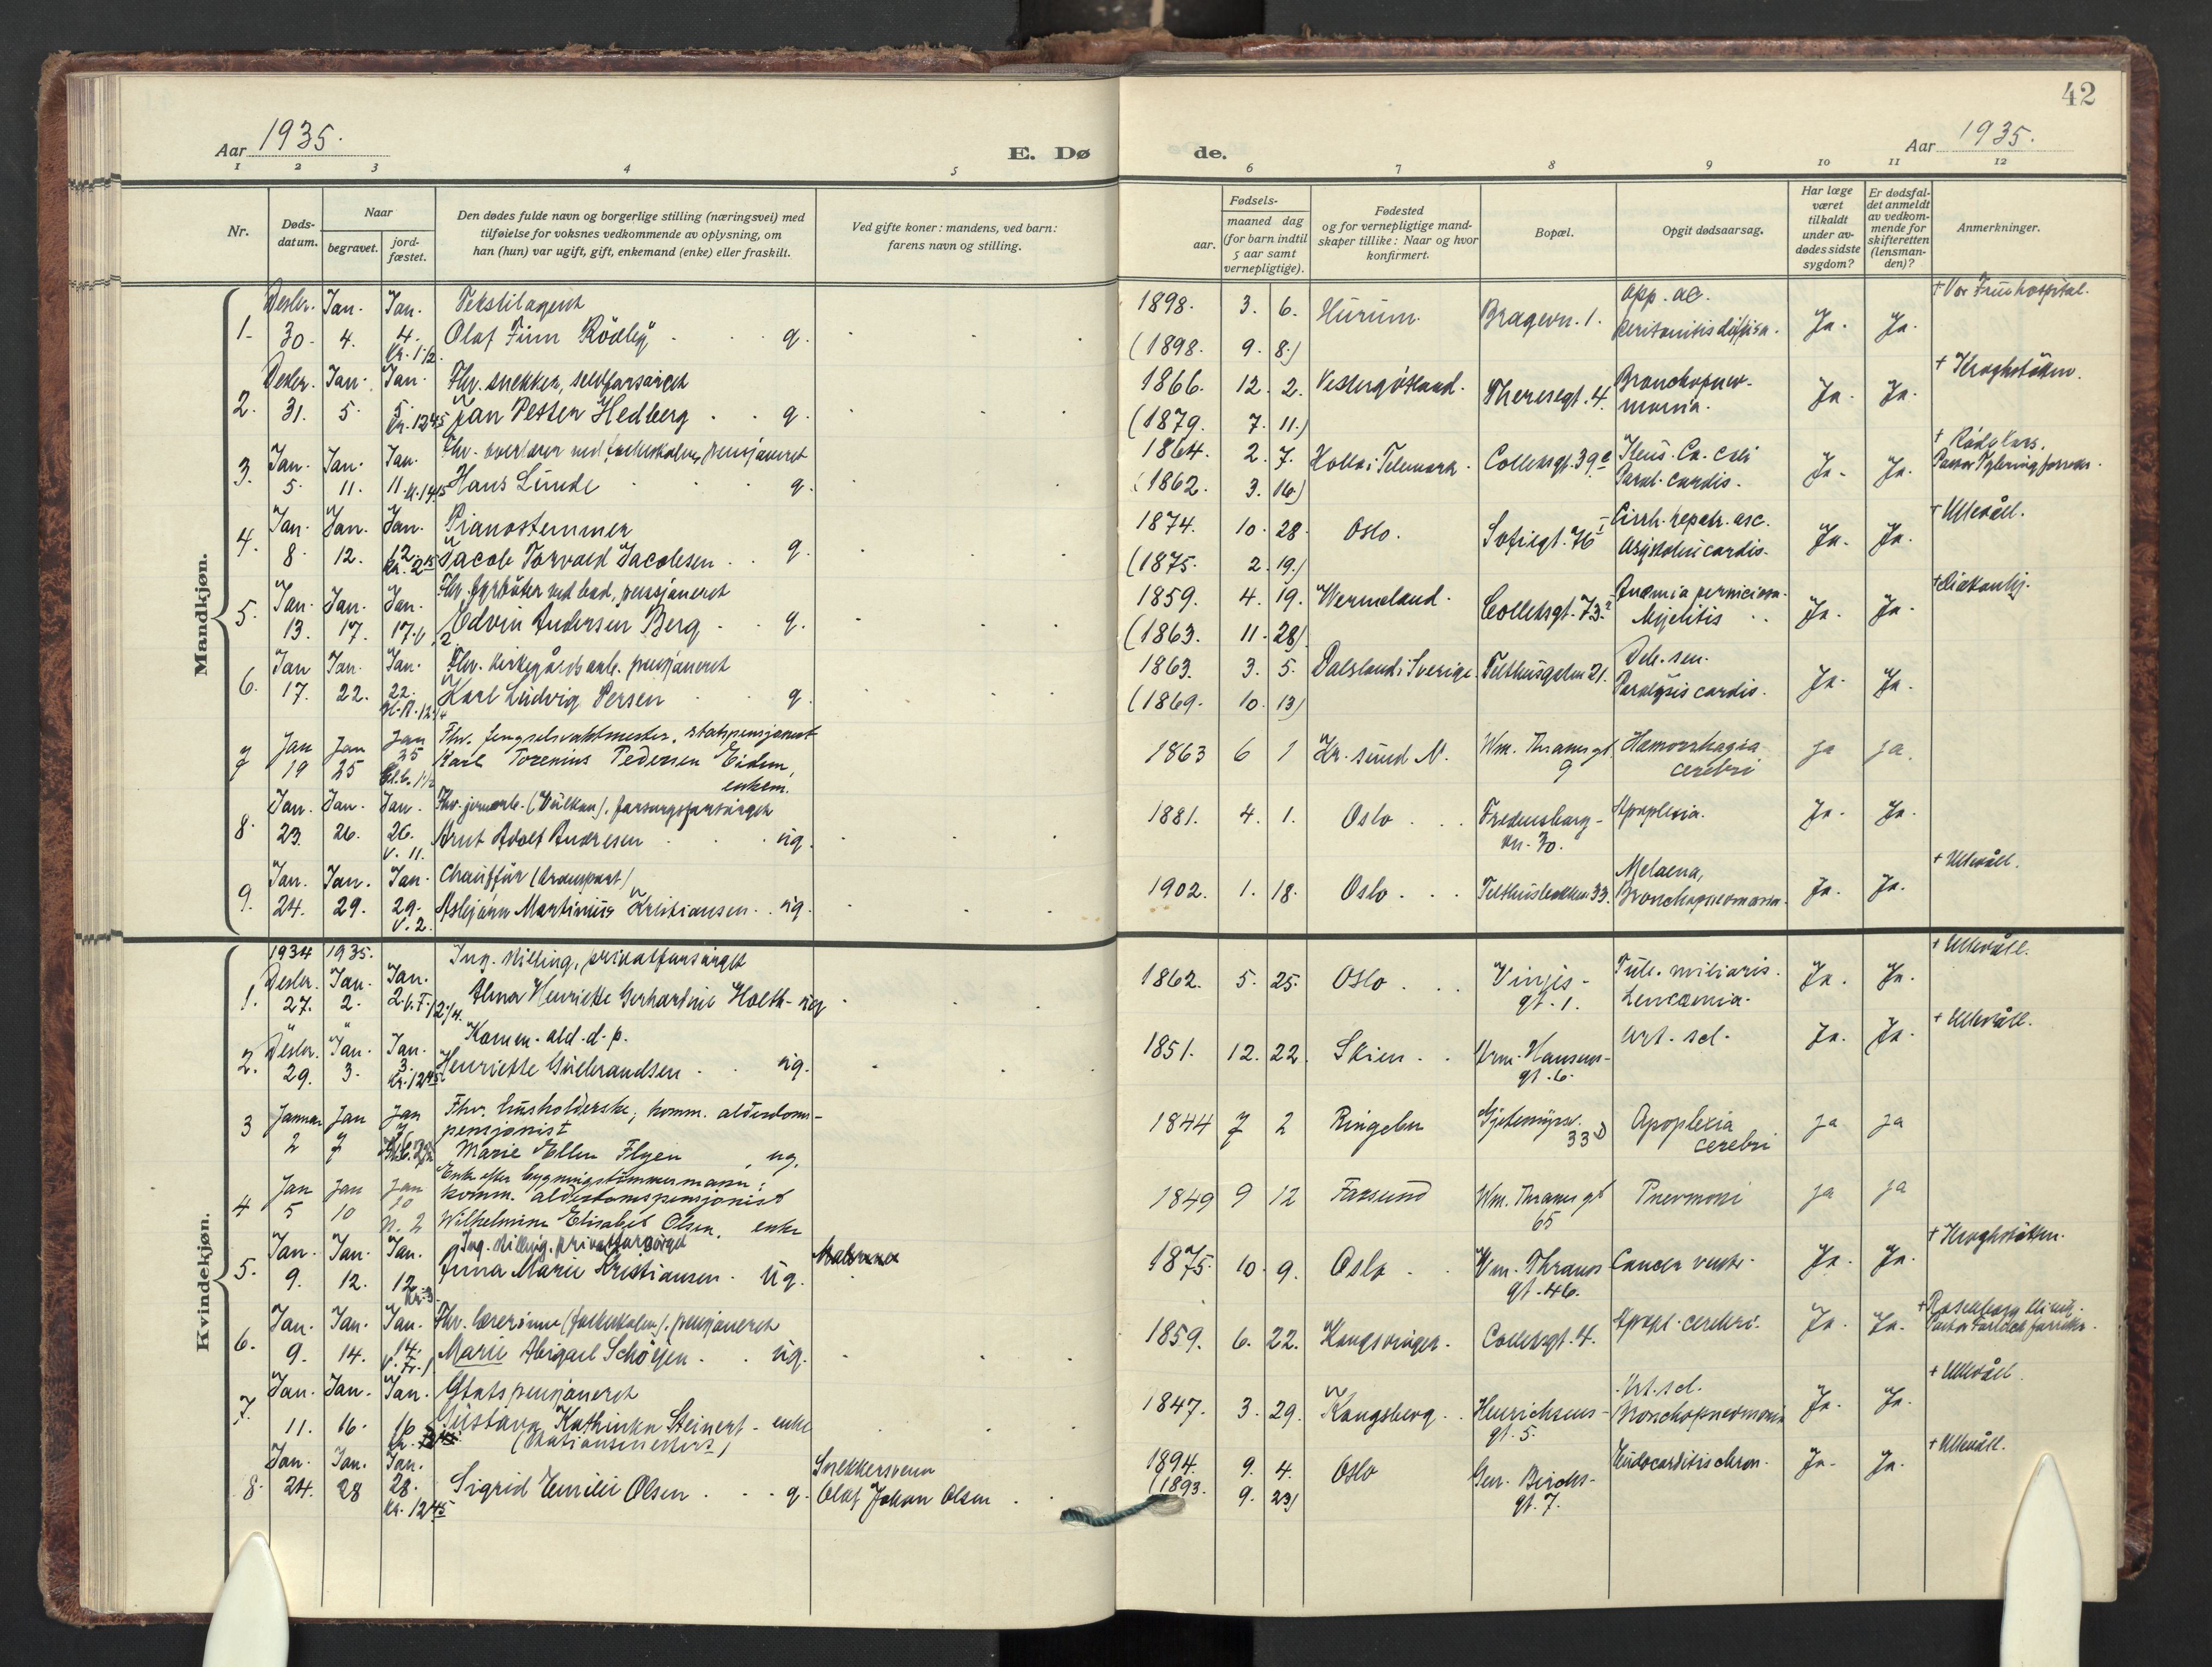 42
Aar 1935.
E. Dø de.
Aar 1935.
1 2 3 4 5 6 7 8 9 10 11 12
Nr.
Døds-
datum.
Naar
begravet.
jord-
fæstet.
Den dødes fulde navn og borgerlige stilling (næringsvei) med
tilføielse for voksnes vedkommende av oplysning, om
han (hun) var ugift, gift, enkemand (enke) eller fraskilt.
Ved gifte koner: mandens, ved barn:
farens navn og stilling.
aar.
Fødsels-
maaned dag
(for barn indtil
5 aar samt
vernepligtige).
Fødested
og for vernepligtige mand-
skaper tillike: Naar og hvor
konfirmert.
Bopæl.
Opgit dødsaarsag.
Har læge
været
tilkaldt
under av-
dødes sidste
sygdom?
Er dødsfal-
det anmeldt
av vedkom-
mende for
skifteretten
(lensman-
den)?
Anmerkninger.
Mandkjøn.
Desbr. Jan. Jan. Tekstilagent 1898. 3. 6. Hurum. Bragevn. 1. App. ac. Ja. Ja. + Vor Frue hospital.
1. 30. 4. 4. Olaf Finn Rödley g. (1898. 9. 8.) peritonitis diffusa.
Desbr. Jan. Jan. Fhv. snekker, selvforsörget 1866. 12. 2. Vestergötland. Theresegt. 4. Bronchopneu- Ja. Ja. + Kroghstötten.
2. 31. 5. 5. kl. 12 45 Jan Petter Hedberg g. (1879. 7. 11.) monia.
Jan. Jan. Jan. Fhv. overlærer ved folkeskolen, pensjonert 1864. 2. 7. Holla i Telemark. Colletsgt. 39 Ileus. Ca. coli Ja. Ja. + Röde Kors.
3. 5. 11. 11. Hans Lunde g. (1862. 3. 16) Paral. cordis.
Jan. Jan. Jan. Pianostemmer 1874. 10. 28. Oslo. Sofiegt. 76 Cirrh. hepat. asc. Ja. Ja. + Ullevål.
4. 8. 12. 12. Jacob Torvald Jacobsen g. (1875. 2. 19.) cordis.
Jan. Jan. Jan. Fhv. fyrböter ved bad, pensjonert 1859. 4. 19. Wermeland. Colletsgt. 73 Anæmia perniciosa. Ja. Ja. + Diakonhj.
5. 13. 17. 17. Edvin Andersen Berg g. (1863. 11. 28) Myelitis
Jan. Jan. Jan. Fhv. kirkegårdsarb. pensjonert 1863. 3. 5. Dalsland i Sverige. Telthusgaten 21. Deb. sen. Ja. Ja.
6. 17. 22. 22. Karl Ludvig Persen g. (1869. 10. 13) Paralysis cordis.
7 Jan Jan Jan Fhv. fengselsvaktmester, statspensjonert
19 25 25 Karl Torenius Pedersen Eidem, 1863 6 1 Kr. sund N. Wm. Thranes gt. 9 Hæmorrhagia cerebri ja ja.
enkem.
Jan. Jan. Jan. Fhv. jernarb. (Vulkan), forsorgsforsörget 1881. 4. 1. Oslo. Fredensborg- Apoplexia. Ja. Ja.
8. 23. 26. 26. V. 11. Arnt Adolf Andresen ug. vn. 30.
Jan. Jan. Jan. Chauffür (transport) 1902. 1. 18. Oslo. Telthusbakken 33. Melaena, Ja. Ja. + Ullevål.
9. 24. 29. 29. V. 2. Asbjörn Martinius Kristiansen. ug. Bronchopneumonia.
Kvindekjøn.
1934 1935.
Desbr. Jan. Jan. Ing. stilling, privatforsörget 1862. 5. 25. Oslo. Vinjes- Tub. miliaris. Ja. Ja. + Ullevål.
1. 27. 2. 2. Alma Henriette Gerhardine Holth ug gt. 1. Leucæmia.
Desbr. Jan. Jan. Komm. ald. d. p. 1851. 12. 22. Skien. Hansens- Art. scl. Ja. Ja. + Ullevål.
2. 29. 3. 3. kl. 12 45 Henriette Gulbrandsen ug. gt. 6.
3 Januar Jan Jan Fhv. husholderske, komm. alderdoms-
2 7 7 pensjonist 1844 7 2 Ringebu Gjetemyrsv. 33 D Apoplexia cerebri ja ja
Marie Ellen Flyen, ug.
Jan Jan Jan Enke efter bygningstömmermann;
4 5 10 10 komm. alderdomspensjonist 1849 9 12 Farsund Wm. Thranes gt 65 Pneumoni ja ja
N. 2 Wilhelmine Elisabet Olsen, enke
Jan. Jan. Jan. Ing. stilling, privatforsörget 1875. 10. 9. Oslo. Wm. Thranes Cancer ventr. Ja. Ja. + Kroghstötten.
5. 9. 12. 12. Anna Marie Kristiansen. ug. gt. 46.
Jan. Jan. Jan. Fhv. lærerinne (folkeskolen), pensjonert 1859. 6. 22. Kongsvinger. Colletsgt. 4. Apopl. cerebri. Ja. Ja. + Rosenborg klinik.
6. 9. 14. 14. Marie Abigael Schöyen. ug.
Jan. Jan. Jan. Statspensjonert 1847. 3. 29. Kongsberg. Henrichsens- Art. scl. Ja. Ja. + Ullevål
7. 11. 16. 16 Gustava Kathinka Steinert - enke gt. 5. Bronchopneumonia
(stationsmesters)
Jan. Jan. Jan. Snekkersvenn 1894. 9. 4. Oslo Gen. Birchs- Endocarditis chron. Ja. Ja. + Ullevål.
8. 24. 28 28. kl. 12 45 Sigrid Emilie Olsen g. Olaf Johan Olsen (1893. 9. 23) gt. 7.